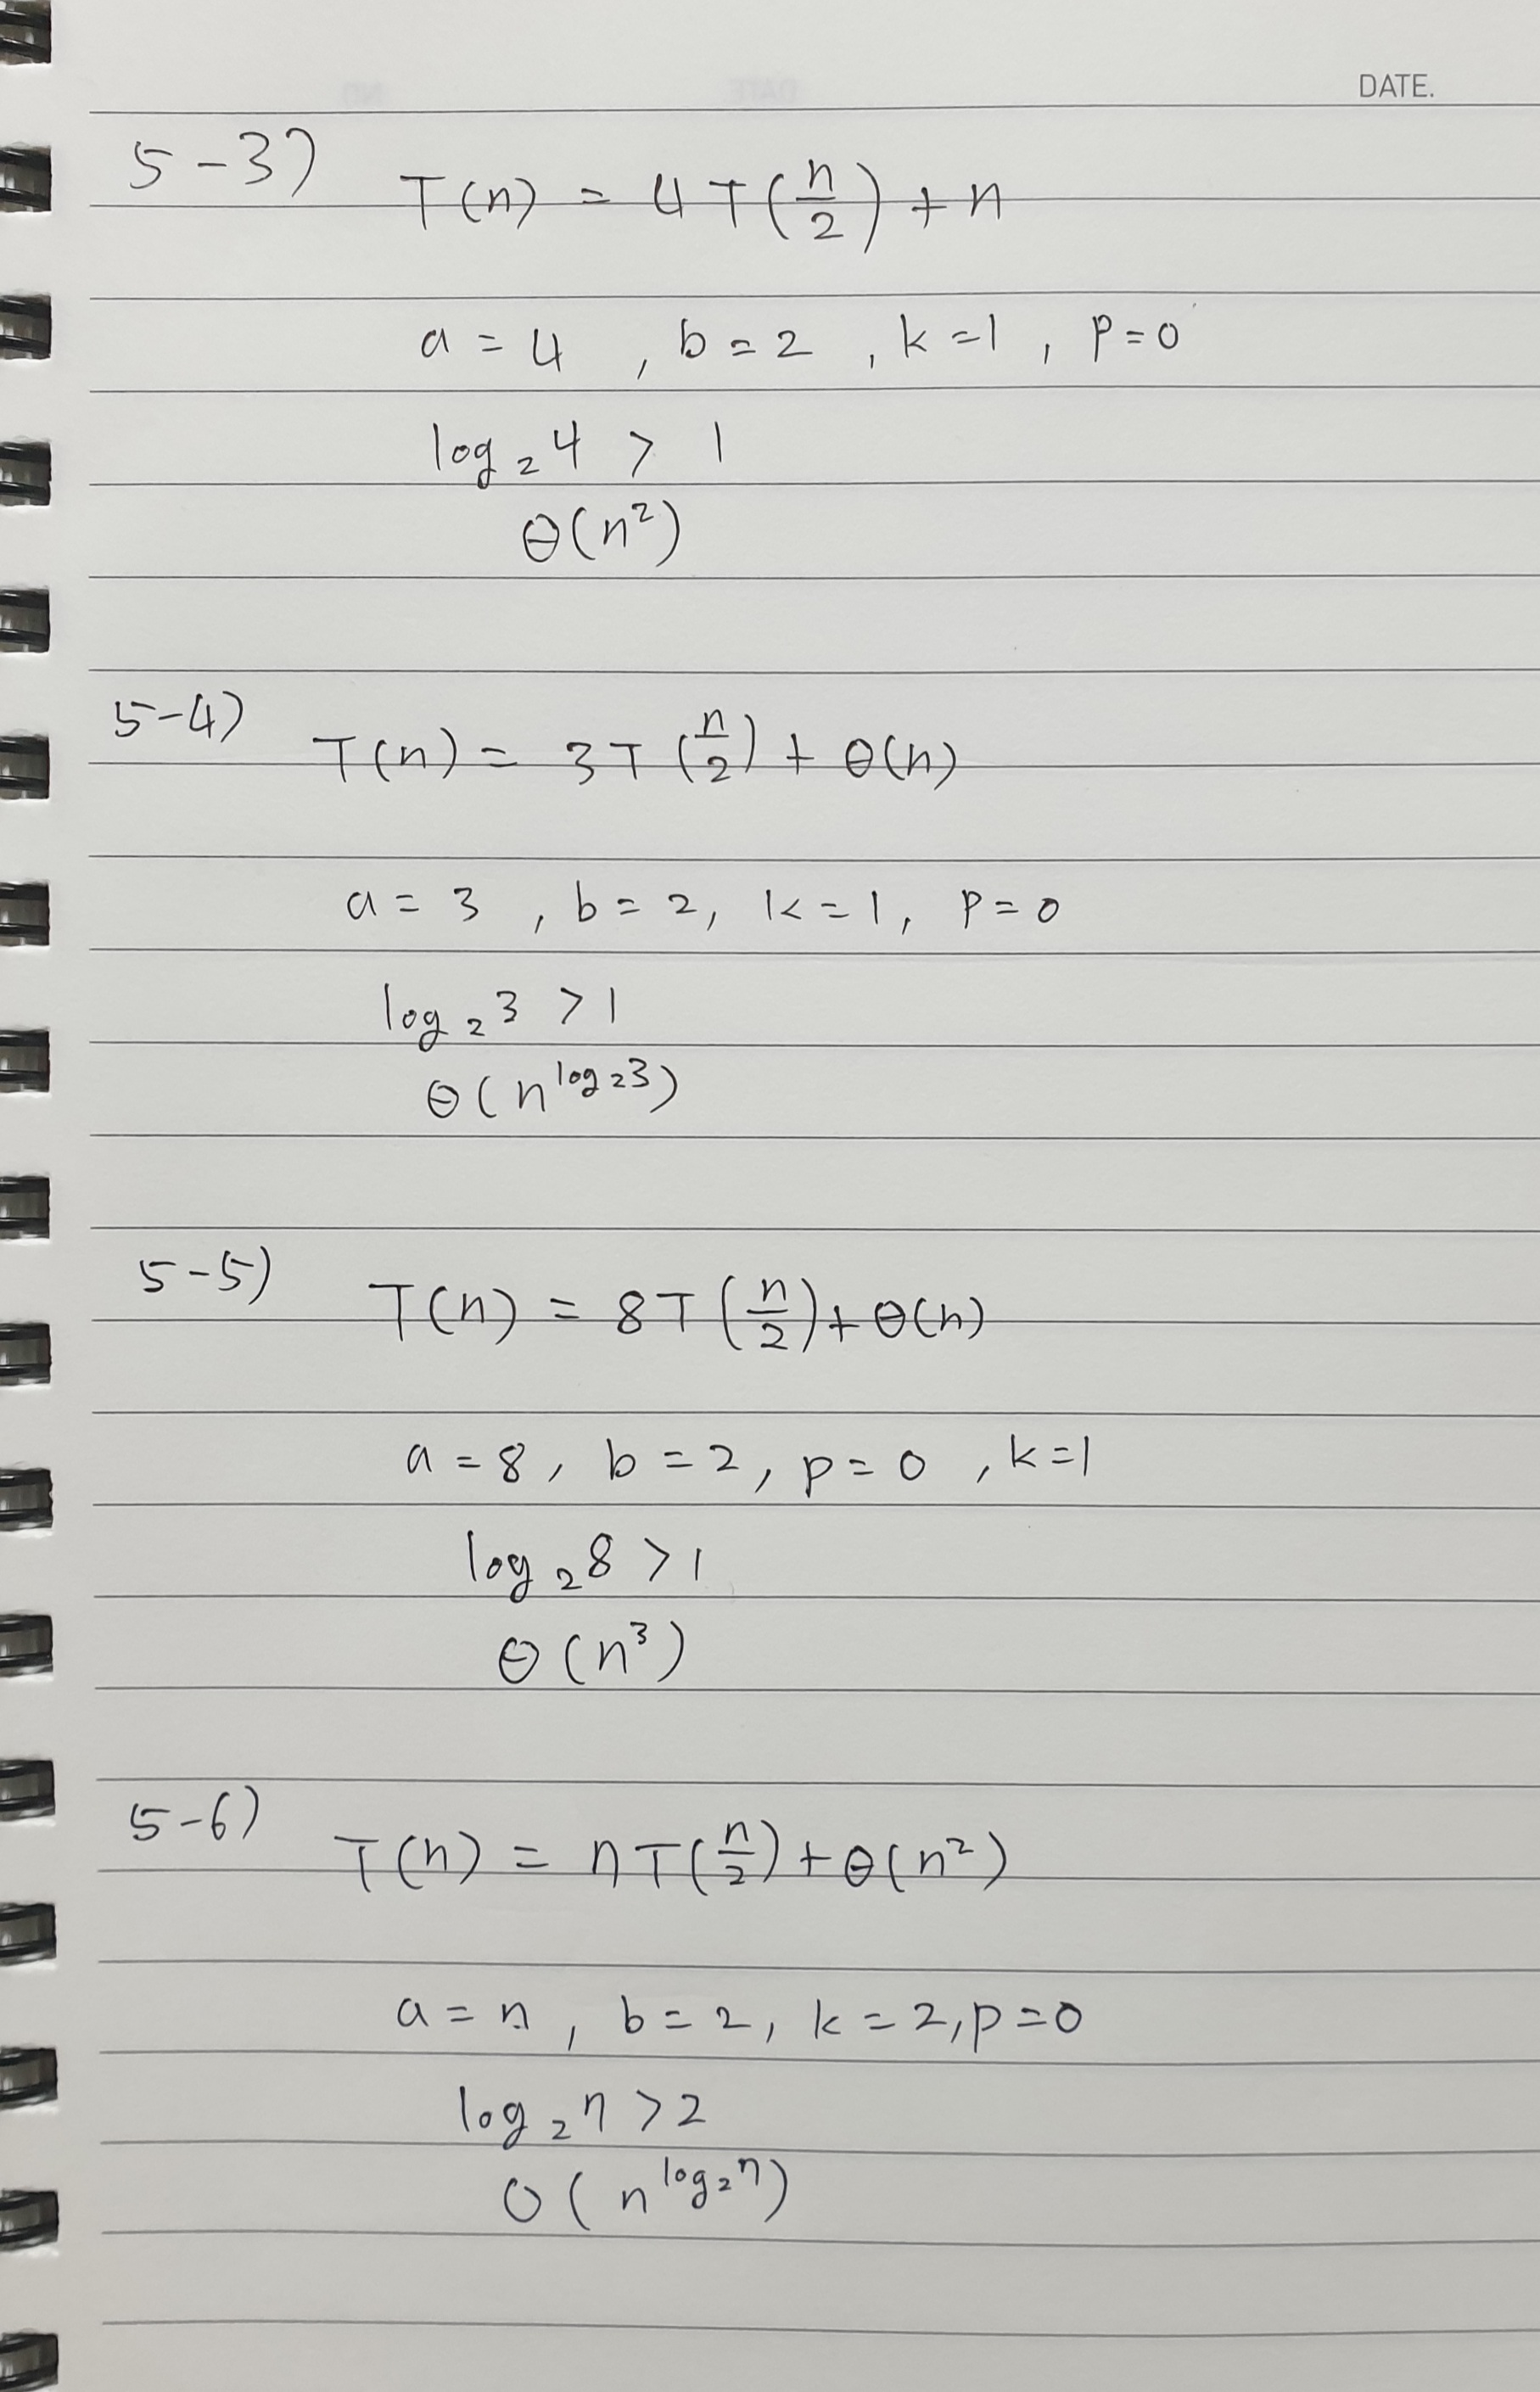 DATE.
5-3)
T(n) = 4T(n/2) + n
a = 4 , b = 2 , k = 1 , p = 0
log₂4 > 1
Θ(n²)
5-4)
T(n) = 3T(n/2) + Θ(n)
a = 3 , b = 2, k = 1, p = 0
log₂3 > 1
Θ(n^log₂3)
5-5)
T(n) = 8T(n/2) + Θ(n)
a = 8, b = 2, p = 0 , k = 1
log₂8 > 1
Θ(n³)
5-6)
T(n) = nT(n/2) + Θ(n²)
a = n , b = 2, k = 2, p = 0
log₂n > 2
O(n^log₂n)